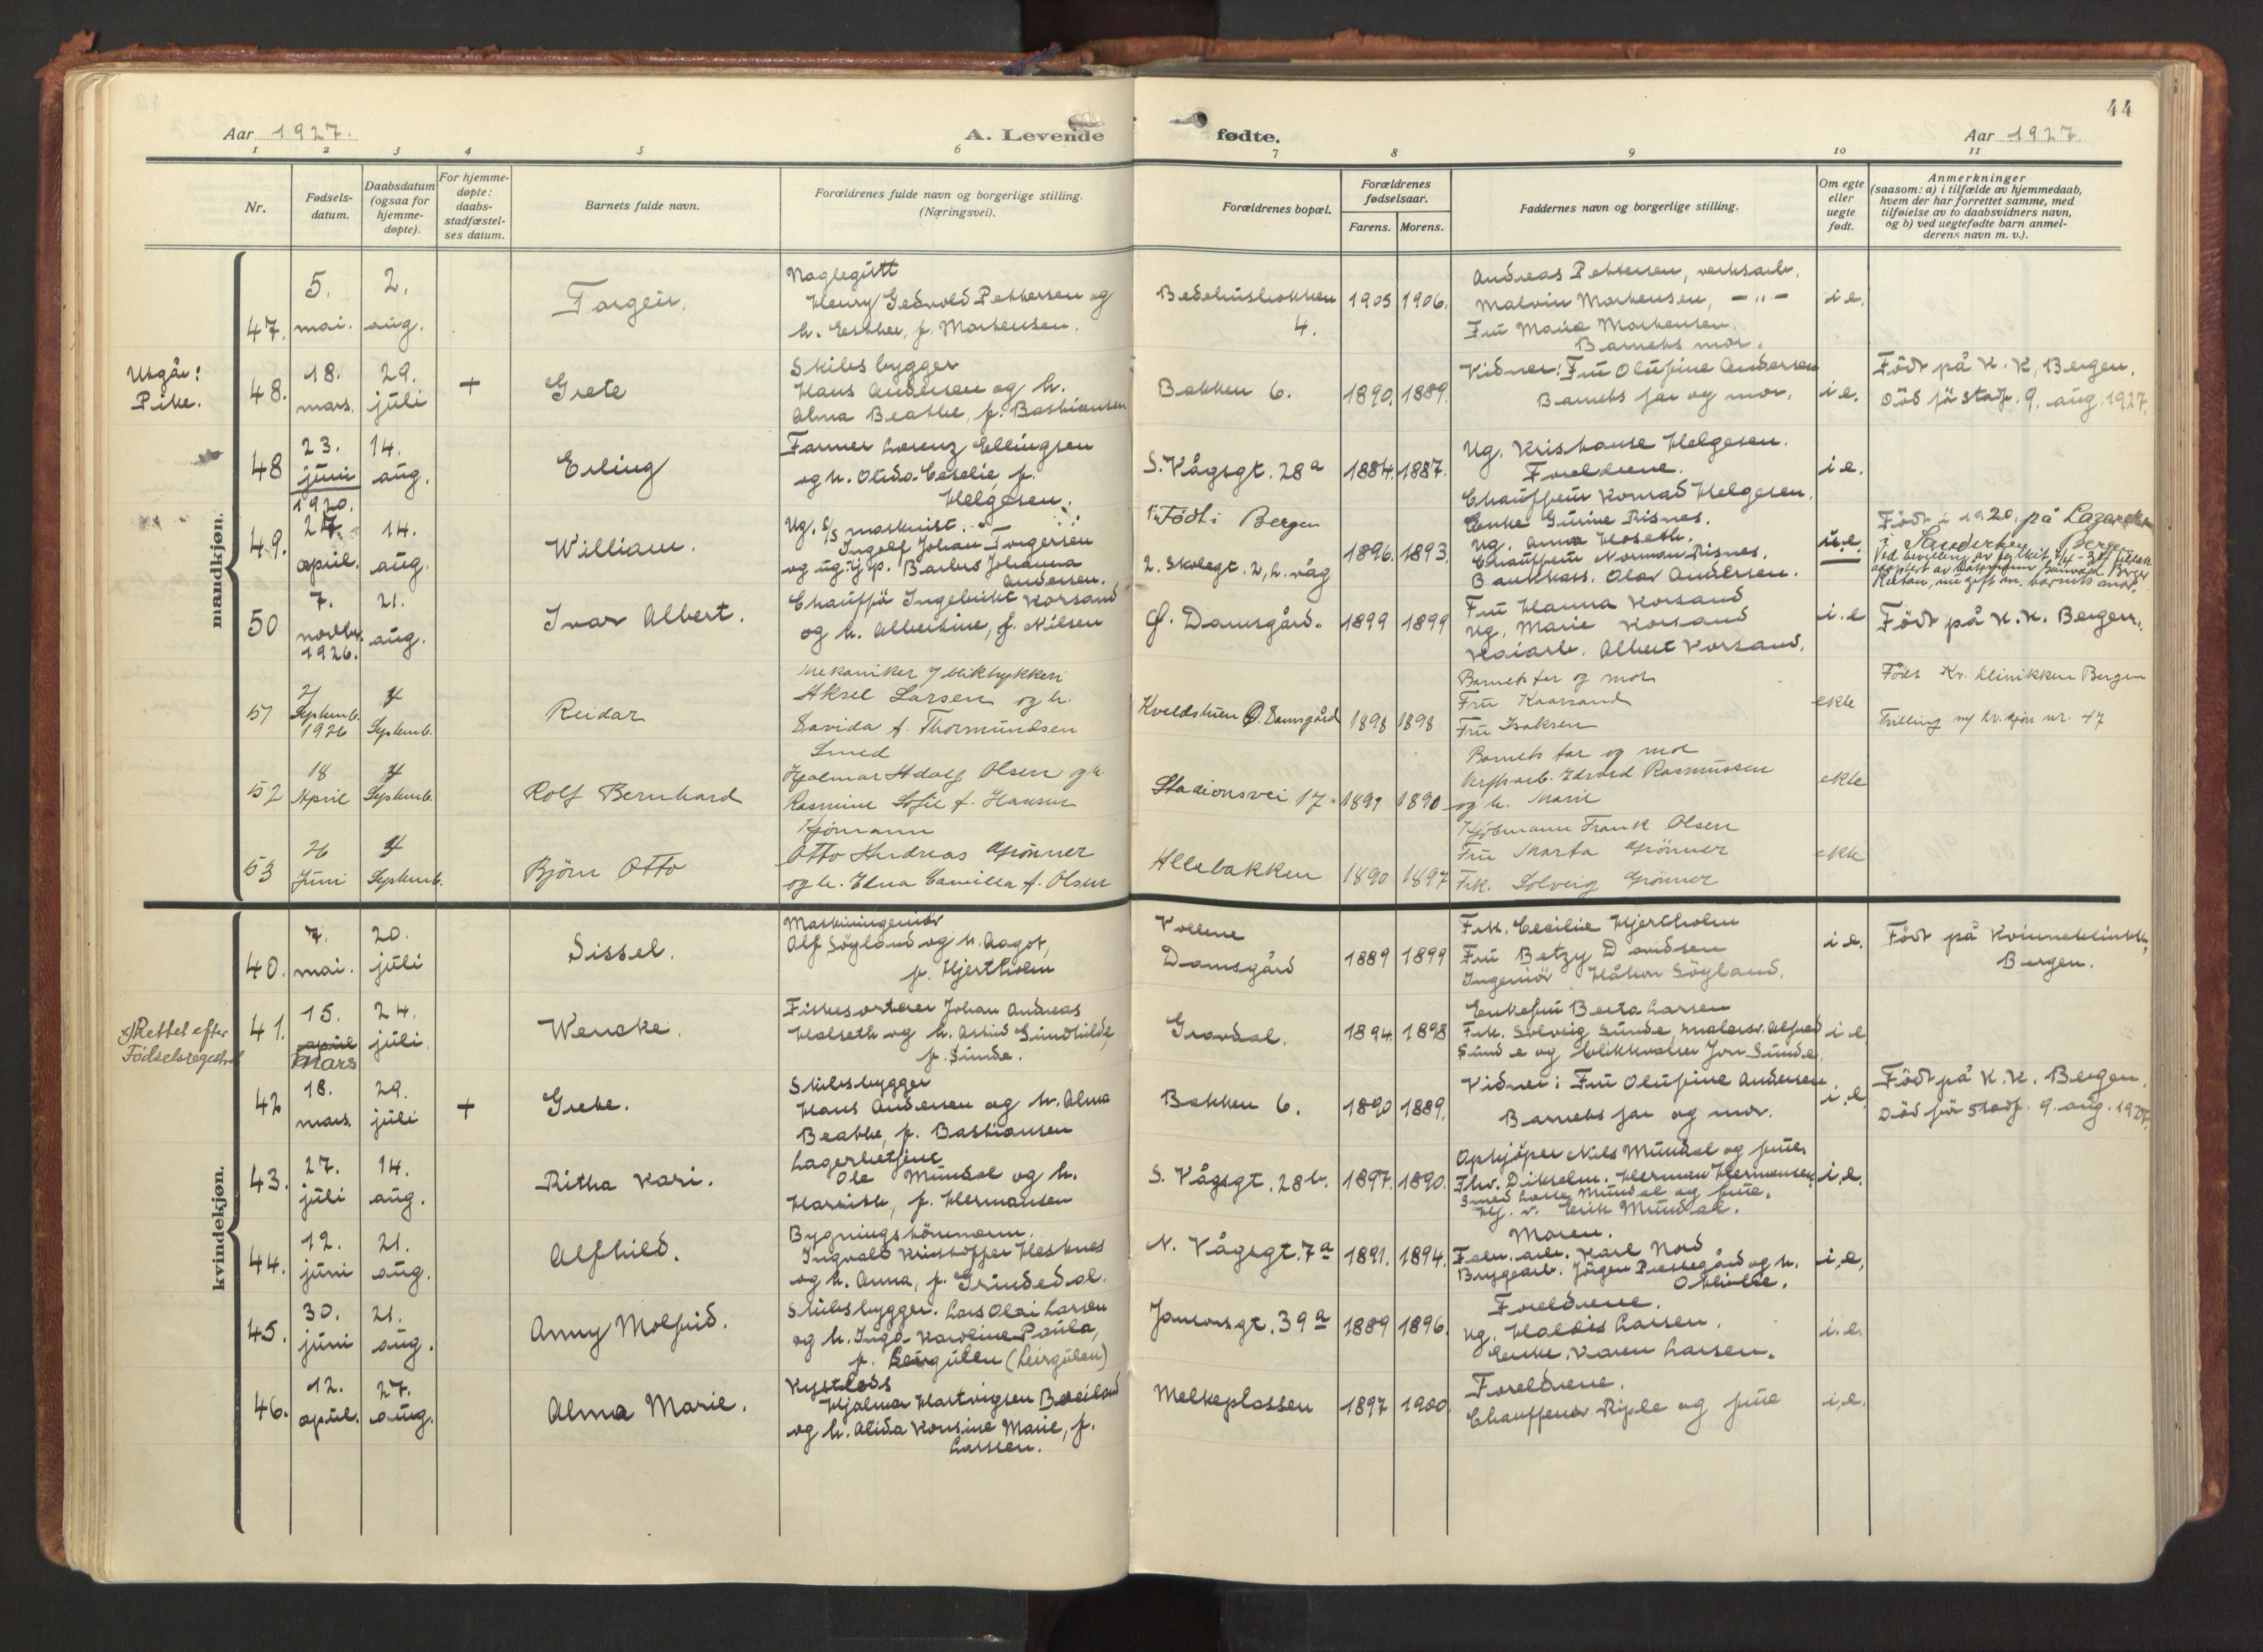 44
Aar 1927.
A. Levende fødte.
Aar 1927.
1 2 3 4 5 6 7 8 9 10 11
Nr.
Fødsels-
datum.
Daabsdatum
(ogsaa for
hjemme-
døpte).
For hjemme-
døpte:
daabs-
stadfæstel-
ses datum.
Barnets fulde navn.
Forældrenes fulde navn og borgerlige stilling.
(Næringsvei).
Forældrenes bopæl.
Forældrenes
fødselsaar.
Farens. Morens.
Faddernes navn og borgerlige stilling.
Om egte
eller
uegte
født.
Anmerkninger
(saasom: a) i tilfælde av hjemmedaab,
hvem der har forrettet samme, med
tilføielse av to daabsvidners navn,
og b) ved uegtefødte barn anmel-
derens navn m. v.).
mandkjøn.
47. 5. mai. 2. aug.
Torgeir.
Naglegutt
Henry Gedvold Pettersen og
h. Esther, f. Mortensen.
Bedehusbakken
4.
1905 1906.
Andreas Pettersen, verksarb.
Malvin Mortensen, - " -
Fru Marie Mortensen.
Barnets mor.
i e.
Utgår:
Pike.
48. 18. mars. 29. juli +
Grete
Skibsbygger
Hans Andersen og h.
Alma Beathe, f. Bastiansen
Bakken 6.
1890. 1889.
Vidner: Fru Olufine Andersen
Barnets far og mor.
i e.
Født på K. K, Bergen.
Död för stadf. 9. aug. 1927.
48 23. juni 1920. 14. aug.
Erling
Farmer Lorenz Ellingsen
og h. Olida Ceselie, f.
Helgesen.
S. Vågsgt. 28a
1884. 1887.
Ug. Kristianse Helgesen.
Foreldrene.
Chauffeur Konrad Helgesen.
i e.
49. 27. april. 14. aug.
William.
Ug. s/s maskinist.
Ingolf Johan Torgersen
og ug. tj.p. Barbra Johanna
Andersen.
Født i Bergen
2. Skolegt. 2, L. våg
1896. 1893.
Enke Gurine Risnes.
Ug. Anna Hoseth.
Chauffeur Norman Risnes.
Bankkass. Olav Andersen.
u. e.
Født i 1920, på
Bergen
50 7. novbr. 1926. 21. aug.
Ivar Albert.
Chauffør Ingebrikt Korsand
og h. Albertine, f. Nilsen
Ø. Damsgård.
1899 1899
Fru Hanna Korsand
Ug. Marie Korsand
Kaiarb. Albert Korsand.
i. e
Født på K. K. Bergen.
51 21 Septemb. 1926 4 Septemb.
Reidar
Mekaniker / bliktrykkeri
Aksel Larsen og h.
Davida f. Thormundsen
Kveldstuen Ø. Damsgård
1898 1898
Barnets far og mor
Fru Kaarsand
Fru Isaksen
ekte
Födt Kv. klinikken Bergen
Tvilling m/ kv. kjön nr. 47
52 18 April 4 Septemb.
Rolf Bernhard
Smed
Hjalmar Adolf Olsen og h.
Rasmine Sofie f. Hansen
Stadionsvei 17
1891 1890
Barnets far og mor
Verftsarb. Edvard Rasmussen
og h. Marie
ekte
53 26 Juni 4 Septemb.
Björn Otto
Sjömann
Otto Andreas Grönner
og h. Edna Camilla f. Olsen
Allebakken
1890 1897
Kjöbmann Frank Olsen
Fru Marta Grönner
Frk. Solveig Grönner
ekte
kvindekjøn.
40. 7. mai. 20. juli
Sissel.
Maskiningeniør
Alf Söyland og h. Aagot,
f. Hjertholm
Vollene
Damsgård
1889 1899
Frk. Cecilie Hjertholm
Fru Betzy Davidsen
Ingeniør Håkon Söyland.
i e.
Född på Kvinneklinikk,
Bergen.
x) Rettet efter
Födselsregistret
41. 15. april mars 24. juli.
Wencke.
Fiskesorterer Johan Andreas
Halseth og h. Astrid Sundhilde,
f. Sunde.
Gravdal.
1894. 1898
Enkefru Berta Larsen
Frk. Solveig Sunde, malersv. Alfred
Sunde og blikkvalser Jon Sunde.
i e
42 18. mars. 29. juli +
Grete.
Skibsbygger
Hans Andersen og h. Alma
Beathe, f. Bastiansen
Bakken 6.
1890 1889.
Vidner: Fru Olufine Andersen
Barnets far og mor.
i. e
Född på K. K. Bergen.
Död för stadf. 9. aug. 1927.
43. 27. juli 14. aug.
Ritha Kari.
Lagerbetjent
Ole Mundal og h.
Harrieth, f. Hermansen
S. Vågsgt. 28b.
1897. 1890.
Ophjöper Nils Mundal og frue.
Herman Hermansen,
Smed Lasse Mundal og frue.
Erik Mundal.
i. e.
44. 12. juni 21. aug.
Alfhild.
Bygningstömmerm.
Ingvald Kristoffer Hestnes
og h. Anna, f. Grindedal.
N. Vågsgt. 7a
1891. 1894.
Moren.
Fabr. arb. Karl Nord
Bryggearb. Jörgen Prestegård og h.
Othilie.
i, e,
45. 30. juni 21. aug.
Anny Molfrid.
Skibsbygger. Lars Olai Larsen
og h. Inga Karoline Paula,
f. Leirgulen (Leirgulen)
Jansonsgt. 39a
1889 1896.
Foreldrene.
Ug. Haldis Larsen.
Enke. Karen Larsen.
i. e.
46. 12. april. 27. aug.
Alma Marie.
Kystlods
Hjalmar Hartvigsen Breiland
og h. Alida Konsine Marie, f.
Larsen.
Melkeplassen
1897 1900.
Foreldrene.
Chauffeur Riple og frue
i, e.